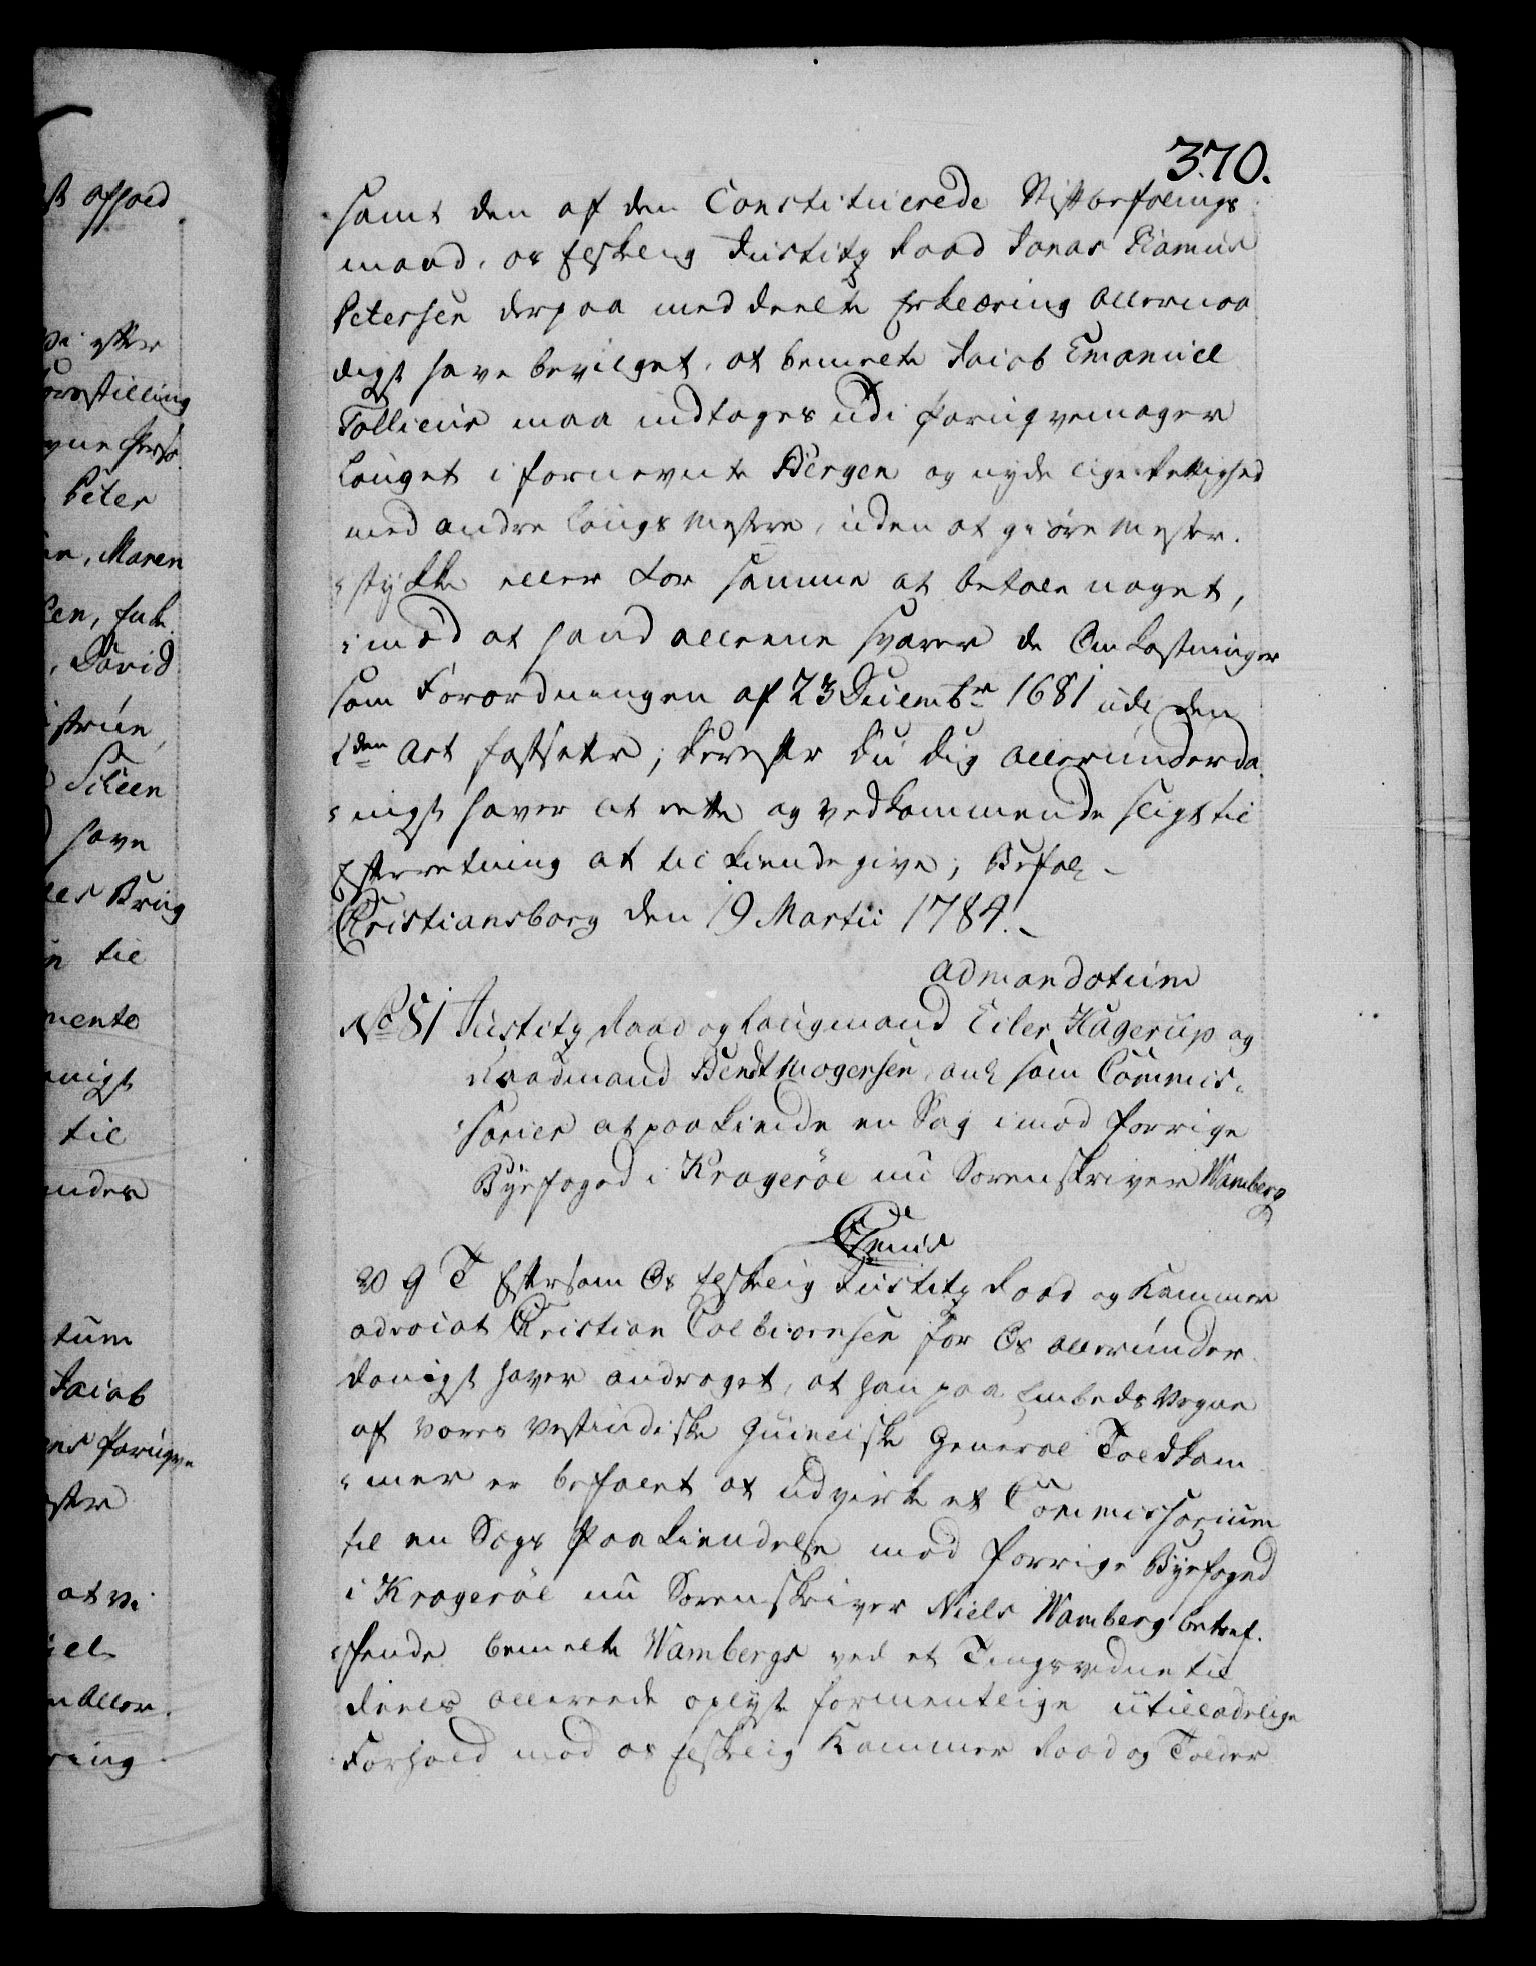 370.
samt den af den Constituerede Stiftbefalings
mand, os elskelig Justitz Raad Jonas Ramus
Petersen derpaa meddeelte Erklæring allernaa
digst have bevilget, at bemelte Jacob Emanuel
Tollieur maa indtages udi Paruqvemager
Lauget i fornevnte Bergen og nyde lige Rettighed
med andre Laugs Mestre, uden at giøre Mester-
stykke eller for samme at betale noget,
imod at hand alleene svarer de Omkostninger
som Forordningen af 23 Decembr 1681 udi den
1den Art fastsetter; derefter du dig allerunderda
nigst haver at rette og vedkommende sligt til
Efterretning at tilkiendegive; Befal
Christiansborg den 19 Martii 1784.
admandatum
No 81 Justitz Raad og Laugmand Eiler Hagerup og
Raadmand Bendt Mogensen, anl som Commis-
sarier at paakiende en Sag imod forrige
Byefoged i Kragerøe nu Sorenskriver Wamberg
C 7mus
W G T Eftersom Os elskelig Justitz Raad og Kammer
advocat Christian Colbiørnsen for Os allerunder
danigst haver andraget, at han paa Embeds Vegne
af vores Vestindiske Guineiske General Toldkam
mer er befalet at udvirke et Commissorium
til en Sags Paakiendelse mod forrige Byefoged
i Kragerøe nu Sorenskriver Niels Wamberg betref-
fende bemelte Wambergs ved et Tingsvidne til
deels allerede oplyste formentlige utilladelige
Forhold mod os elskelig Kammer Raad og Tolder
st afhold
vi efter
Forestilling
Peter
Maren
David
have
til
mente
til
tum
Jacob
at vi